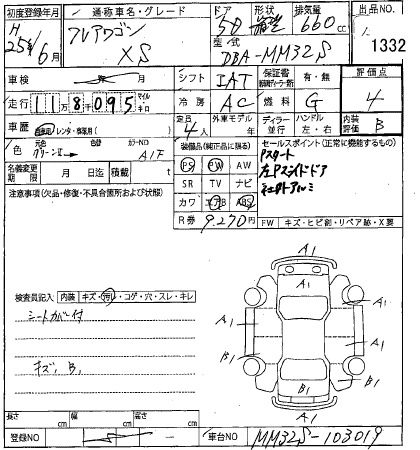 初度登録年月 通称車名・グレード ドア 形状 排気量 出品NO
H25年6月 フレアワゴン XS 5D 660cc 1332
型式 DBA-MM32S
車検 年 月 シフト IAT 保証書 有・無 評価点
走行 118095 マイル キロ 冷房 AC 燃料 G 4
車歴 自家用/レンタ・事業用( ) 定員 4人 外車モデル 年 ディーラー 並行 ハンドル 左・右 内装評価 B
色 元色 色替 カラーNO A1F
装備品(純正品に限る) セールスポイント(正常に機能するもの)
PS PW AW Pスタート
SR TV ナビ 左Pスライドドア
カワ エアB ABS 社外アルミ
名義変更期限 月 日迄 積載 t
R券 9,270円 FW キズ・ヒビ割・リペア跡・X要
注意事項(欠品・修復・不具合箇所および状態)
A1
A1
A1
A1 A1
A1
B1 B1
B1
A1
検査員記入 内装 キズ・汚れ・コゲ・穴・スレ・キレ
シートカバー付
キズ、B1
長さ cm 幅 cm 高さ cm
登録NO 車台NO MM32S-103019